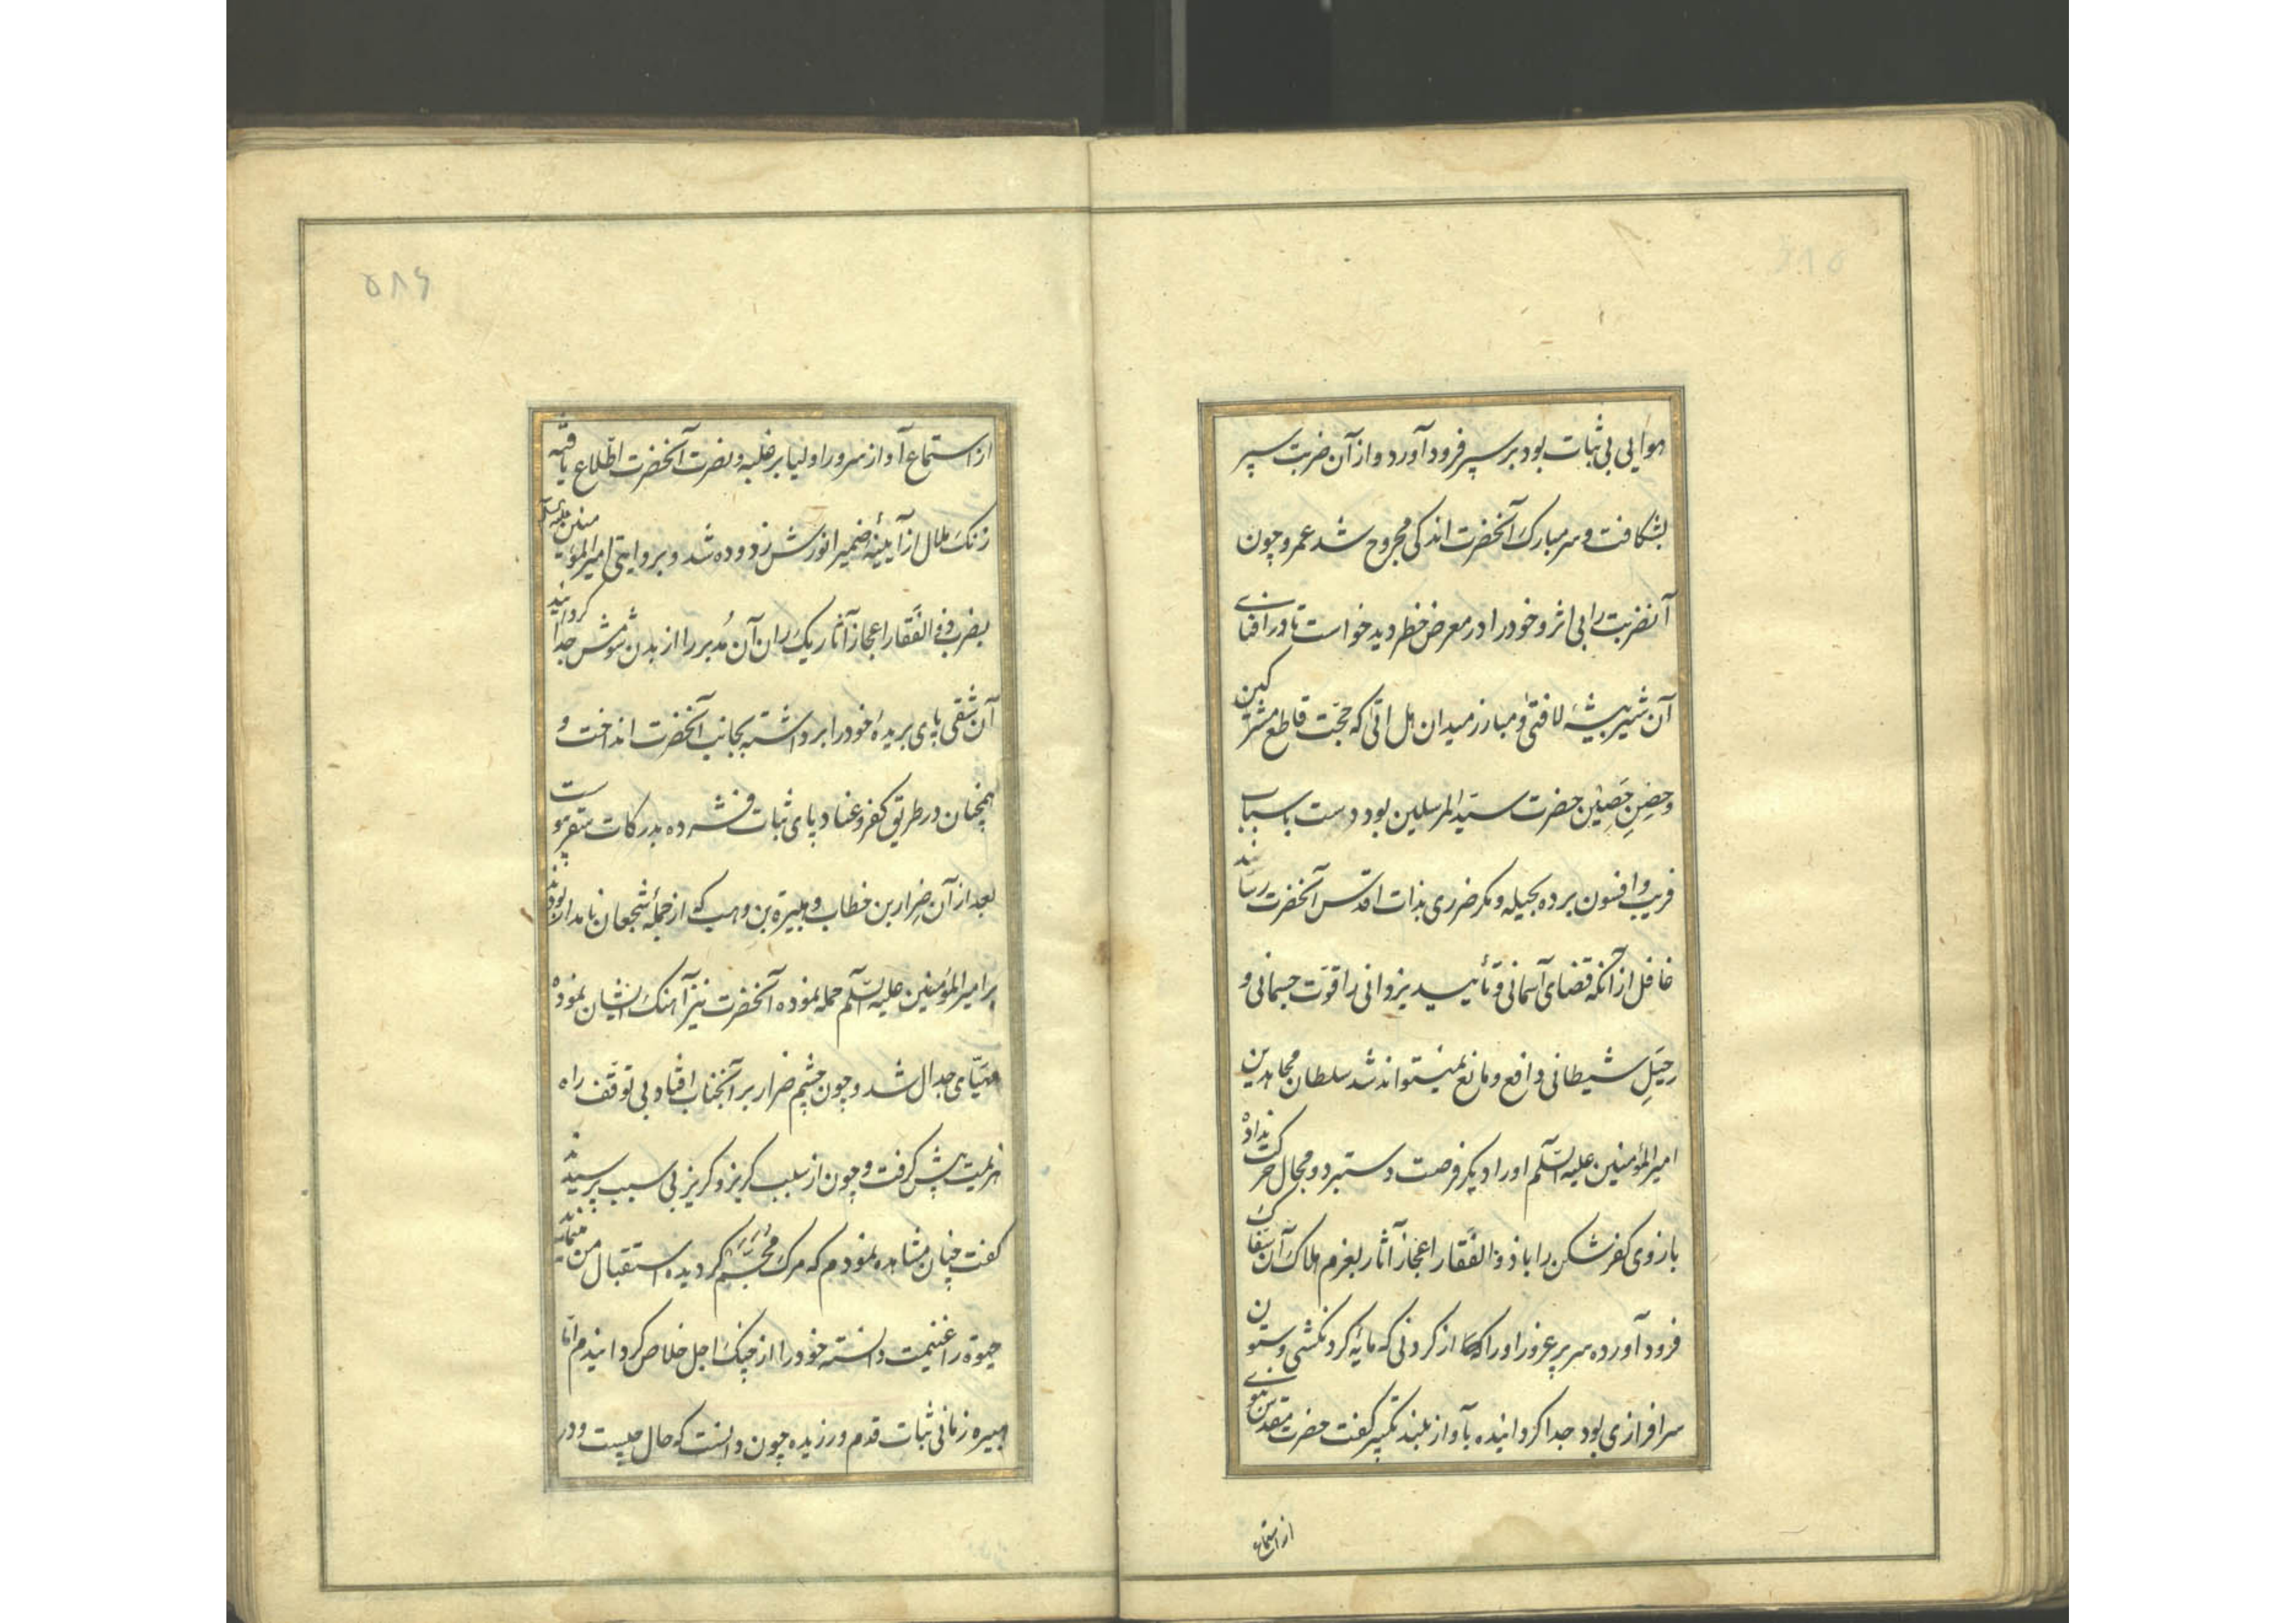 هوایی بی ثبات بود بر سپر فرود آورد و از آن ضربت سپر
بشکافت و سر مبارک آنحضرت اندکی مجروح شد عمرو چون
آنضربت را بی اثر و خود را در معرض خطر دید خواست تا در اثنای
آن شیر بیشهٔ لافتی و مبارز میدان هل اتی که حجّت قاطع مشرکین
وحِصنِ حَصِیْن حضرت سیّد المرسلین بود دست باسباب
فریب و افسون برده بحیله و مکر ضرری بذات اقدس آنحضرت رساند
غافل از آنکه قضای آسمانی و تأیید یزدانی را قوّت جسمانی و
حِیَلِ شیطانی دافع و مانع نمیتواند شد سلطان مجاهدین
امیر المؤمنین علیه السّلم او را دیکر فرصت دستبرد و مجال حرکت نداده
بازوی کفر شکن را با ذو الفَقار اعجاز آثار بعزم هلاک آن سفّاک
فرود آورده سر پر غرور او را که از کردنی که مایهٔ کردنکشی و ستون
سرافرازی بود جدا کردانیده بآواز بلند تکبیر کفت حضرت مقدّس نبوی
از استماع
۵۸۶
از استماع آواز سرور اولیا بر غلبه و نصرت آنحضرت اطّلاع یافته
زنک ملال از آیینهٔ ضمیر انورش زدوده شد و بروایتی امیر المؤمنین علیه السّلم
بضرب ذو الفَقار اعجاز آثار یک ران آن مُدبر را از بدن شومش جدا کردانید
آن شقی پای بریدهٔ خود را برداشته بجانب آنحضرت انداخت و
همچنان در طریق کفر و عناد پای ثبات فشرده بدرکات سقر پیوست
بعد از آن ضِرار بن خطاب و هبیرة بن وهب که از جملهٔ شجعان نامدار بودند
بر امیر المؤمنین علیه السّلم حمله نموده آنحضرت نیز آهنک ایشان نموده
مهیّای جدال شد و چون چشم ضرار بر آنجناب افتاد بی توقّف راه
هزیمت پیش کرفت و چون از سبب کریز و کریز بی سبب پرسیدند
کفت چنان مشاهده نمودم که مرک مُجَسَّم کردیده استقبال من مینماید
حیوة را غنیمت دانسته خود را از چنک اجل خلاص کردانیدم امّا
هبیره زمانی ثبات قدم ورزیده چون دانست که حال چیست و در